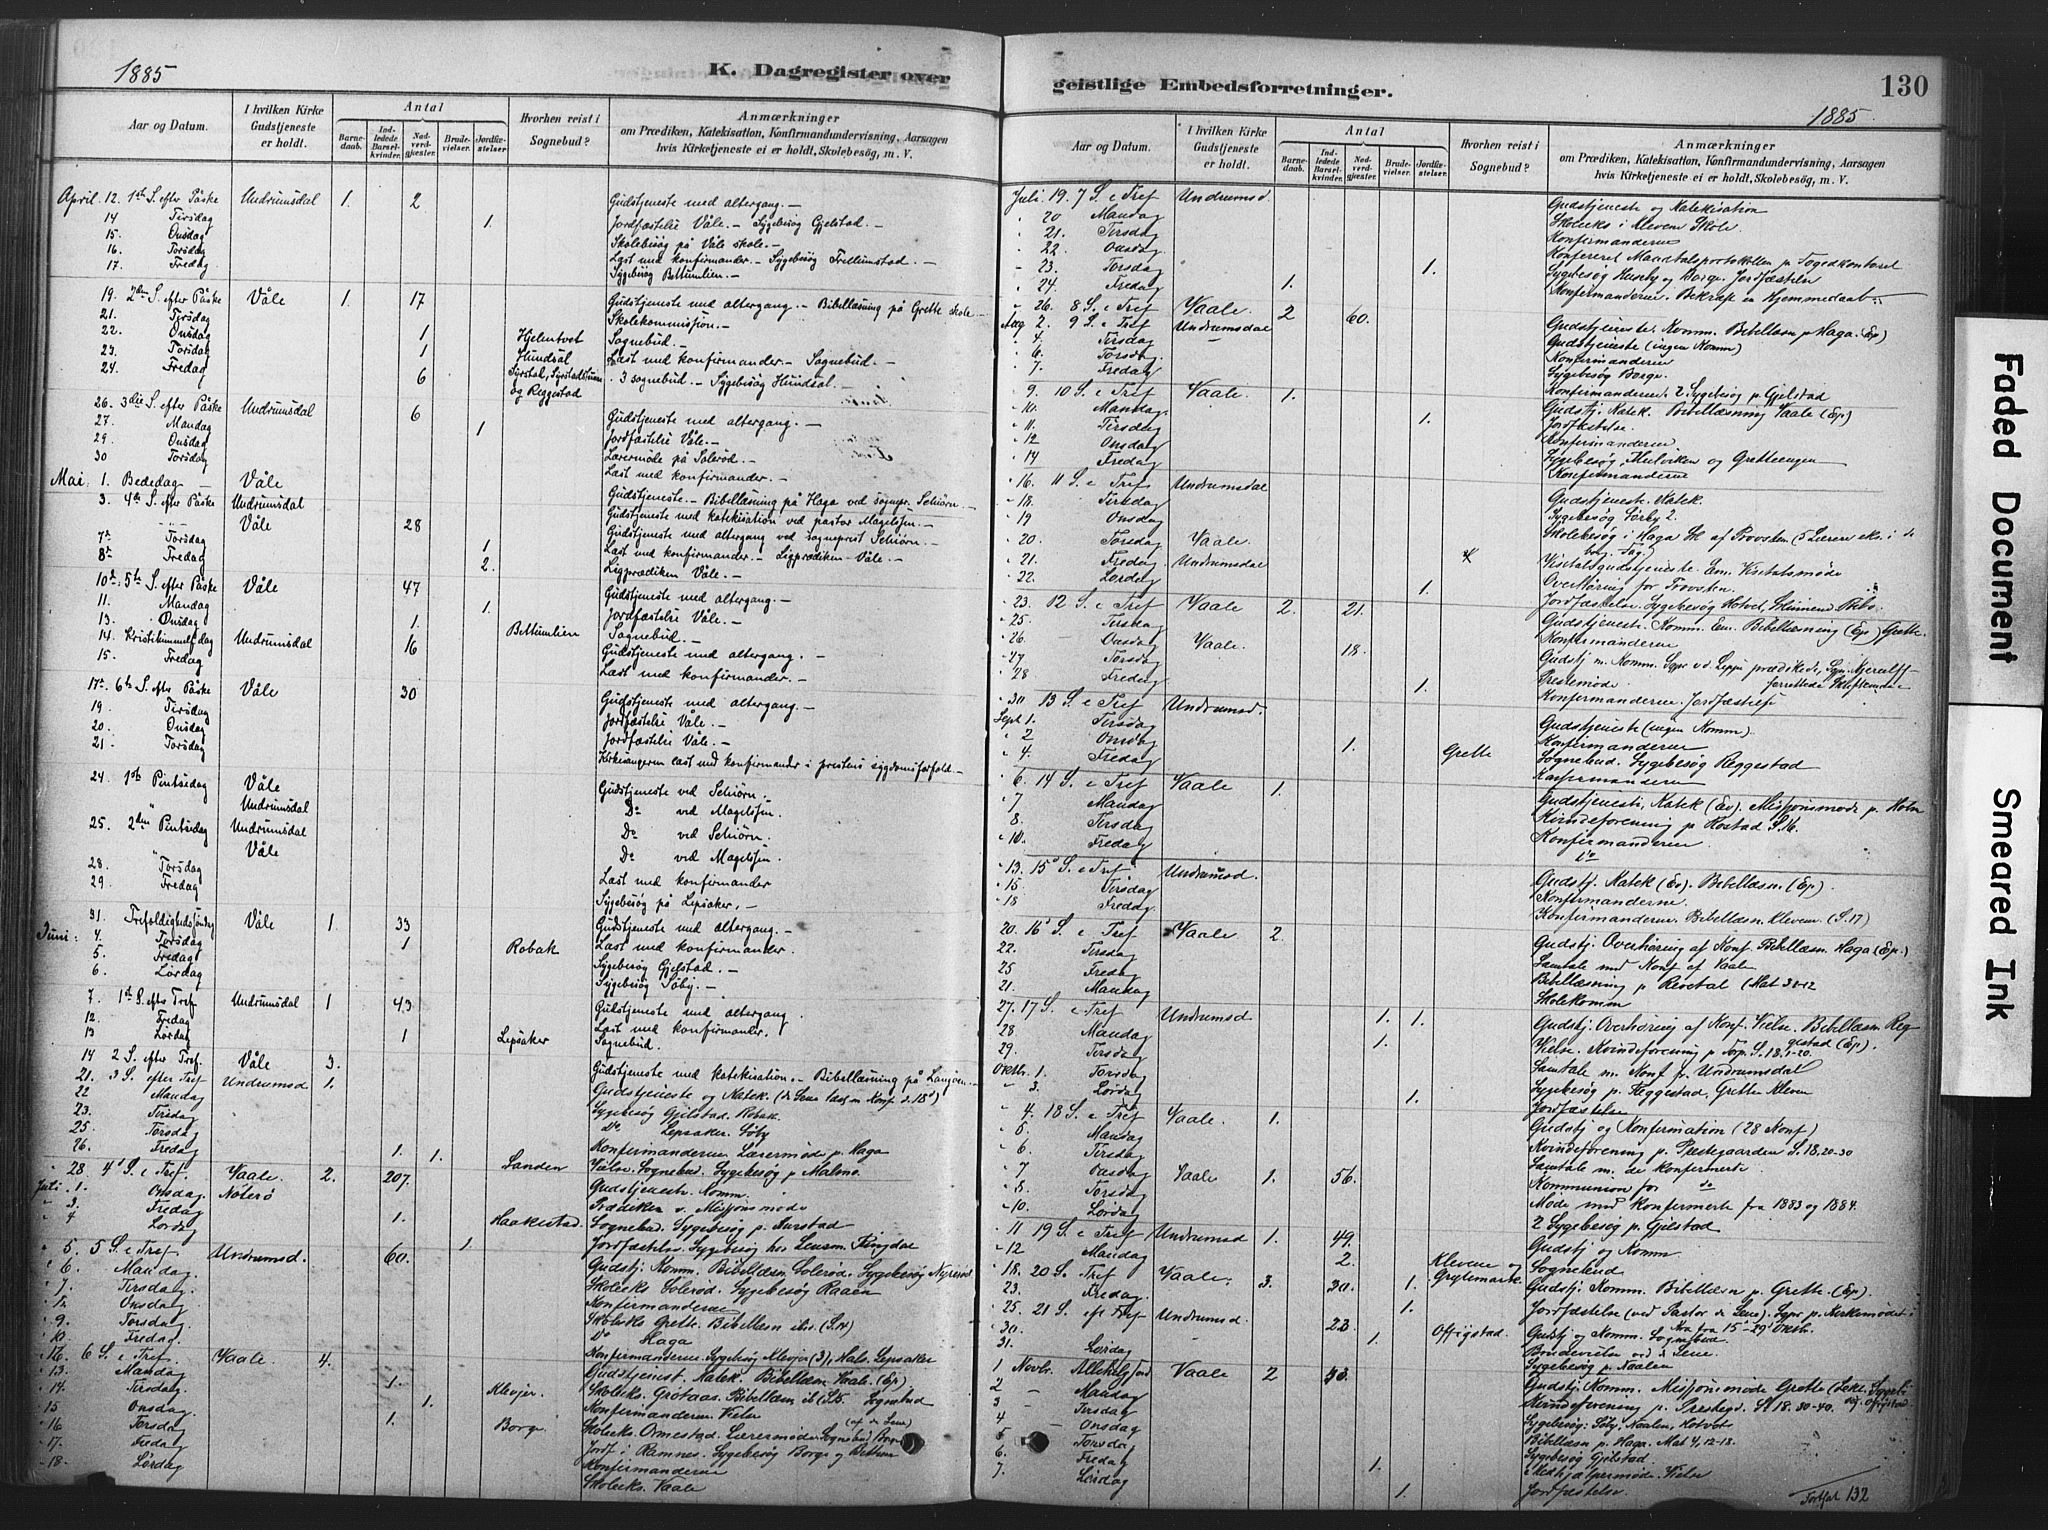 1885
K. Dagregister over
Aar og Datum.
I hvilken Kirke Gudstjeneste er holdt.
Antal
Barne-daab.
Ind-ledede Barsel-kvinder.
Nad-verd-gjester.
Brude-vielser.
Jordfæ-stelser.
Hvorhen reist i Sognebud?
Anmærkninger
om Prædiken, Katekisation, Konfirmandundervisning, Aarsagen
hvis Kirketjeneste ei er holdt, Skolebesøg, m. V.
April. 12. 1ste S. efter Påske Undrumsdal 1. 2 Gudstjeneste med altergang. —
14 Tirsdag 1. Jordfæstelse Våle. — Sygebesøg Gjelstad.
15. Onsdag Skolebesøg på Våle skole. —
16. Torsdag Læst med konfirmander. — Sygebesøg
17. Fredag Sygebesøg Bettumlien. —
19. 2den S. efter Påske Våle 1. 17 Gudstjeneste med altergang. — Bibellæsning på Grette skole —
21. Tirsdag Skolekommission. —
22. Onsdag 1 Hjelentvet Sognebud. —
23. Torsdag 1 Hundsal Læst med konfirmander — Sognebud. —
24. Fredag 6 og Reggestad 3 sognebud. — Sygebesøg Hundsal. —
26. 3die S. efter Påske Undrumsdal 6 Gudstjeneste med altergang. —
27. Mandag 1 Jordfæstelse Våle. —
29. Onsdag Lærermøde på Solerød. —
30 Torsdag Læst med konfirmander. —
Mai: 1. Bededag — Våle Gudstjeneste. — Bibellæsning på Haga ved sognepr. Schiørn. —
3. 4de S. efter Påske Undrumsdal Gudstjeneste med katekisation ved pastor Magelssen. —
Våle 28 Gudstjeneste med altergang ved sogneprest Schiørn. —
7de Torsdag 1 Læst med konfirmander. — Ligprædiken Våle. —
8de Fredag 2. Ligprædiken Våle. —
10de 5te S. efter Påske Våle 47 Gudstjeneste med altergang. —
11. Mandag 1. Jordfæstelse Våle. —
13. Onsdag 1. Bettumlien Sognebud. —
14. Kristi himmelf. dag Undrumsdal 16 Gudstjeneste med altergang. —
15. Fredag Læst med konfirmander. —
17de 6te S. efter Påske Våle 30 Gudstjeneste med altergang. —
19. Tirsdag Jordfæstelse Våle. —
20. Onsdag Jordfæstelse Våle. —
21. Torsdag Kirkesangeren læst med konfirmander i prestens sygdomsforfald —
24. 1ste Pintsedag Våle Gudstjeneste ved Schiørn.
Undrumsdal Do ved Magelssen.
25. 2den Pintsedag Undrumsdal Do ved Schiørn.
Våle Do ved Magelssen.
28. Torsdag Læst med konfirmander
29. Fredag Sygebesøg på Lepsaker. —
31. Trefoldighedssøndag Våle 1 33 Gudstjeneste med altergang. —
Juni: 4. Torsdag 1 Robak Læst med konfirmander.
5. Fredag Sygebesøg Gjelstad. —
6. Lørdag Sygebesøg Søby. —
7. 1ste S. efter Tref Undrumsdal 1 43 Gudstjeneste med altergang.
12. Fredag Læst med konfirmander.
13 Lørdag 1 Lepsaker Sognebud.
14 2 S. efter Tref. Våle 3. Gudstjeneste med katekisation. — Bibellæsning på Langøen.
21. 3 S. efter Tref Undrumsd 1. Gudstjeneste og Katek.
22 Mandag Sygebesøg Gjelstad. Robak
23. Tirsdag Do Lepsaker. Søby
25. Torsdag Konfirmanderne. Lærermøde p. Haga
26. Fredag 1. 1. Sanden Vielse. Sognebud. Sygebesøg p. Malmø.
28. 4d S. e Tref. Vaale. 2. 207. Gudstjeneste. Komm.
Juli 1. Onsdag. Nøterø Prædiken v. Missionsmøde
3. Fredag 1. Haakestad Sognebud. Sygebesøg p. Aurstad
4 Lørdag 1. Jordfæstelse. Sygebesøg hos Lensm. Ringdal
5. 5 S. e Tref. Undrumsd. 60. Gudstj. Komm. Bibellæsn. Solerød.
6. Mandag. Skoleeks. Solerød. Sygebesøg Raaen
7. Tirsdag Konfirmanderne
Onsdag Skoleeks Grette. Bibellæsn ibid.
9. Torsdag Do Haga
10. Fredag. Konfirmanderne. Sygebesøg Klevjer (3), Hals. Lepsaker
6 S. e Tref. Vaale. 4. Gudstjenest. Katek. Bibellæsn. Vaale. (Ep.)
13. Mandag 1. Klevjer. Skoleeks. Grøtaas. Sognebud
14. Tirsdag. 1. Konfirmanderne. Vielse (af de Seue)
15 Onsdag. 1. Borge Skoleeks. Ormestad. Lærermøde
16 Torsdag Jordf. i Ramnes. Sygebesøg Borge og Bettum
17. Fredag Konfirmanderne
18. Lørdag Skoleeks. Vaale.
geistlige Embedsforretninger.
130
1885.
Aar og Datum.
I hvilken Kirke Gudstjeneste er holdt.
Antal
Barne-daab.
Ind-ledede Barsel-kvinder.
Nad-verd-gjester.
Brude-vielser.
Jordfæ-stelser.
Hvorhen reist i Sognebud?
Anmærkninger
om Prædiken, Katekisation, Konfirmandundervisning, Aarsagen
hvis Kirketjeneste ei er holdt, Skolebesøg, m. V.
Juli. 19. 7 S. e Tref Undrumsd. Gudstjeneste og Katekisation
20 Mandag Skoleeks i Klevene Skole.
21. Tirsdag Konfirmanderne
22. Onsdag Konfereret Mandtalsprotokollen p Fogedkontoret
23. Torsdag 1. Sygebesøg Huseby og Borge. Jordfæstelse
24. Fredag 1. Konfirmanderne. Bekræft. en Hjemmedaab
26. 8 S. e Tref Vaale. 2 60. Gudstjeneste. Komm. Bibellæsn p. Haga. (Ep)
Aug 2. 9 S. e Tref Undrumsdal Gudstjeneste (ingen Komm)
4. Tirsdag Konfirmanderne
6. Torsdag. Sygebesøg Borge.
7. Fredag Konfirmanderne. 2 Sygebesøg p. Gjelstad
9. 10 S. e Tref Vaale. 1. Gudstj. Katek. Bibellæsning Vaale (Ep)
10. Mandag. 1. Jordfæstelse.
11. Tirsdag Konfirmanderne
12 Onsdag Sygebesøg, Hulviken og Gretteengen
14 Fredag Konfirmanderne
16. 11 S. e Tref Undrumsdal Gudstjeneste. Katek.
18. Tirsdag Sygebesøg Sørby 2.
19 Onsdag Skolebesøg i Haga Skl af Provsten (5 Lærere eks. i de
20. Torsdag Vaale bog. Fag)
21. Fredag Undrumsdal Visitatsgudstjeneste. Em. Visitatsmøde
22. Lørdag 1. Overhøring for Provsten.
23. 12 S. e Tref Vaale 2. 21. Jordfæstelse. Sygebesøg Hotvet,
25. Tirsdag Gudstjeneste. Komm. Em. Bibellæsning (Ep) Grette.
26. Onsdag Vaale. 18. Konfirmanderne
27 Torsdag Gudstj m. Komm.
28 Fredag 1. Prestemøde
30 13 S. e Tref Undrumsd. Konfirmanderne. Jordfæstelse
Sept 1. Tirsdag Gudstjeneste (ingen Komm).
2 Onsdag 1. Grette Konfirmanderne
4. Fredag Sognebud. Sygebesøg Reggestad
6. 14 S. e Tref Vaale 1. Konfirmanderne
7 Mandag Gudstjeneste, Katek (Ev). Missionsmøde p. Holm
8. Tirsdag Kvindeforening p. Rostad S. 16.
10. Fredag Konfirmanderne.
do
13. 15d S. e Tref Undrumsd. Gudstj. Katek (Ev). Bibellæsn. (Ep).
15. Tirsdag Konfirmanderne.
18 Fredag Konfirmanderne. Bibellæsn. Klevene. (S. 17)
20. 16d S. e Tref Vaale 2. Gudstj. Overhøring af Konf. Bibellæsn. Haga (Ep.)
22. Tirsdag Samtale med Konf af Vaale
25 Fredag Bibellæsning p. Revetal
21. Mandag Skolekomm
27. 17 S. e Tref Undrumsd 1. 1. Gudstj. Overhøring af Konf. Vielse. Bibellæsn. Reg
28. Mandag 1. gestad (Ep).
29. Tirsdag Vielse. Kvindeforening p. Torp. S. 18. 1-20.
Oktbr. 1. Torsdag Samtale m. Konf p. Undrumsdal
3. Lørdag 1. Sygebesøg p. Reggestad, Grette, Kleven
Jordfæstelse
4. 18 S. e Tref Vaale. 1. Gudstj og Konfirmation (28 Konf)
5. Mandag Kvindeforening p. Prestegaarden S. 18. 20-30
6. Tirsdag Samtale m. de konfirmerte
7 Onsdag Vaale 1. 56. Kommunion for do
8. Torsdag Møde med konfirmerte fra 1883 og 1884.
10. Lørdag 2 Sygebesøg p. Gjelstad
11 19 S. e Tref Undrumsd 1. 49. Gudstj og Komm.
12 Mandag 2. Klevene og Grytemark. Sognebud
18. 20 S. Tref Vaale. 3. 30. 1. Gudstj. Komm. Bibellæsn p. Grette (Ep).
23. Fredag 1. Jordfæstelse (ved Pastor de Seue). Sgpr p. Kirkemødet i
25. 21 S. eft Tref Undrumsd. 23. Kra fra 15d-29d Oktbr.
30. 1. Gudstj og Komm. Sognebud
31. Lørdag Brudevielse ved de Seue.
Sygebesøg p. Naalen
1 Novbr. Vaale 2 53. Gudstj. Komm. Missionsmøde Grette
2 Mandag Kvindeforening p. Prestegd. S. 18. 30-40.
3 Tirsdag Sygebesøg: Søby, Naalen, Hotvet
4 Onsdag Bibellæsn p. Haga. Mat 4, 12-18.
5 Torsdag Sygebesøg Gjelstad
6. Fredag 1. Vielse
7. Lørdag 1. Jordfæstelse.
Fortsat 132
Faded Document
Smeared Ink